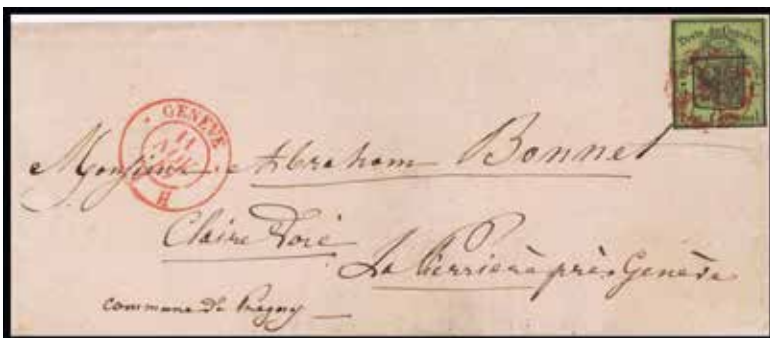 Poste de Genève
GENEVE
11
H
Monsieur Abraham Bonnet
Claire Voie
La Perrière près Genève
commune de Pregny